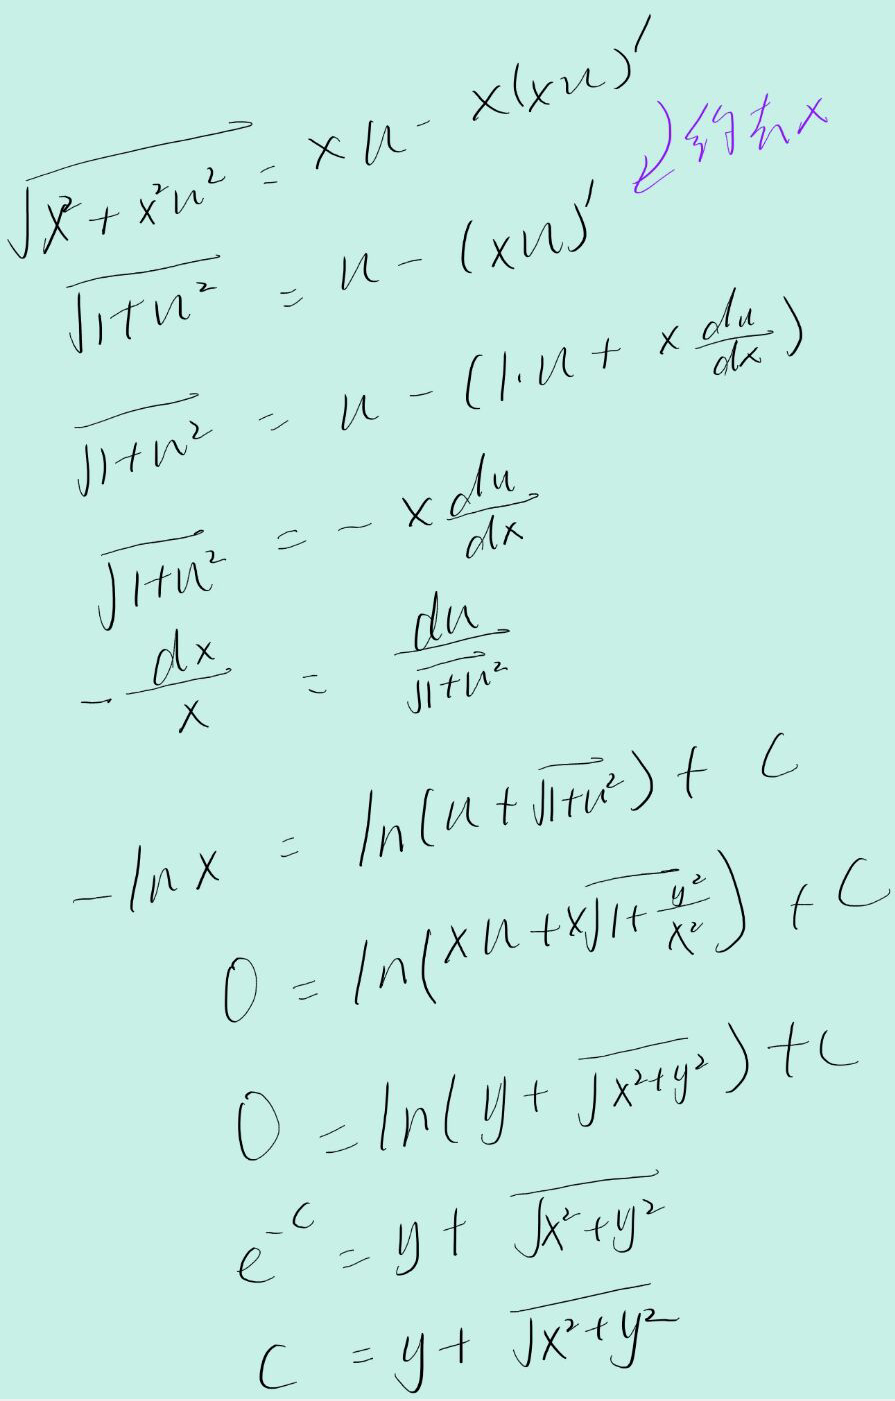 √(x²+x²u²) = xu - x(xu)′
约去x
√(1+u²) = u - (xu)′
√(1+u²) = u - (1·u + x du/dx)
√(1+u²) = - x du/dx
- dx/x = du/√(1+u²)
-lnx = ln(u+√(1+u²)) + C
0 = ln(xu+x√(1+y²/x²)) + C
0 = ln(y+√(x²+y²)) + C
e^(-C) = y + √(x²+y²)
C = y + √(x²+y²)